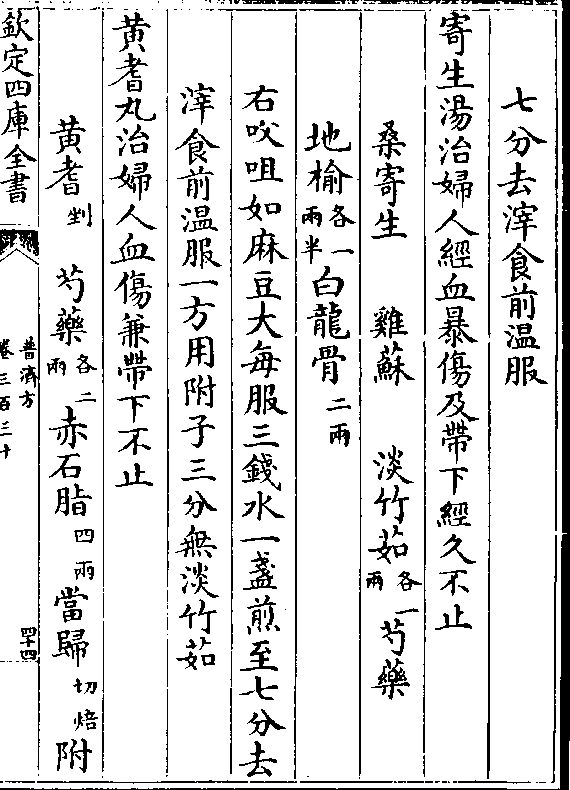 七分去滓食前温服
寄生湯治婦人經血暴傷及帶下經久不止
桑寄生 雞蘇 淡竹茹各一兩 芍藥
地榆各一兩半 白龍骨二兩
右㕮咀如麻豆大每服三錢水一盞煎至七分去
滓食前温服一方用附子三分無淡竹茹
黄耆丸治婦人血傷兼帶下不止
黄耆剉 芍藥各二兩 赤石脂四兩 當歸切焙 附
欽定四庫全書
普濟方
卷三百三十
四十四